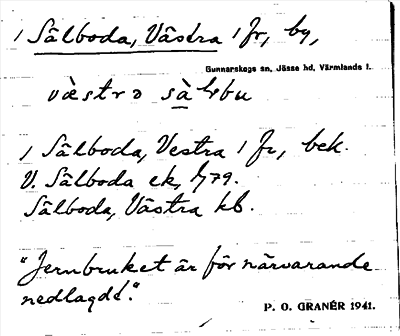 1 Sälboda, Västra 1 fr, by,
Gunnarskogs sn, Jösse hd, Värmlands l.
væstrə
1 Sälboda, Vestra 1 fr, bek.
V. Sälboda ek, 79.
Sälboda, Västra kb.
"Jernbruket är för närvarande
nedlagdt."
P. O. GRANÉR 1941.